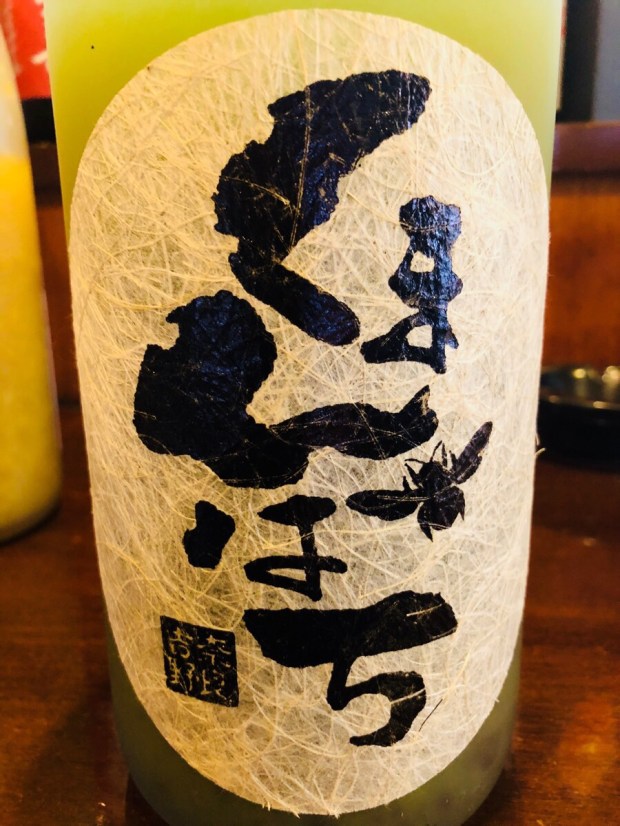 くまんばち
奈良
吉野